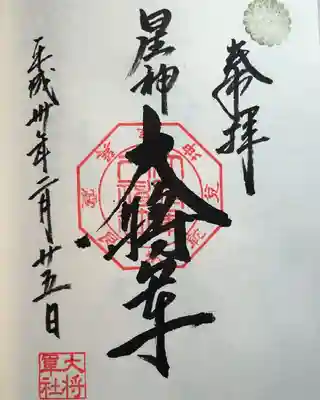 奉拝
星神
大将軍
平成卅年二月廿五日
大将
軍社